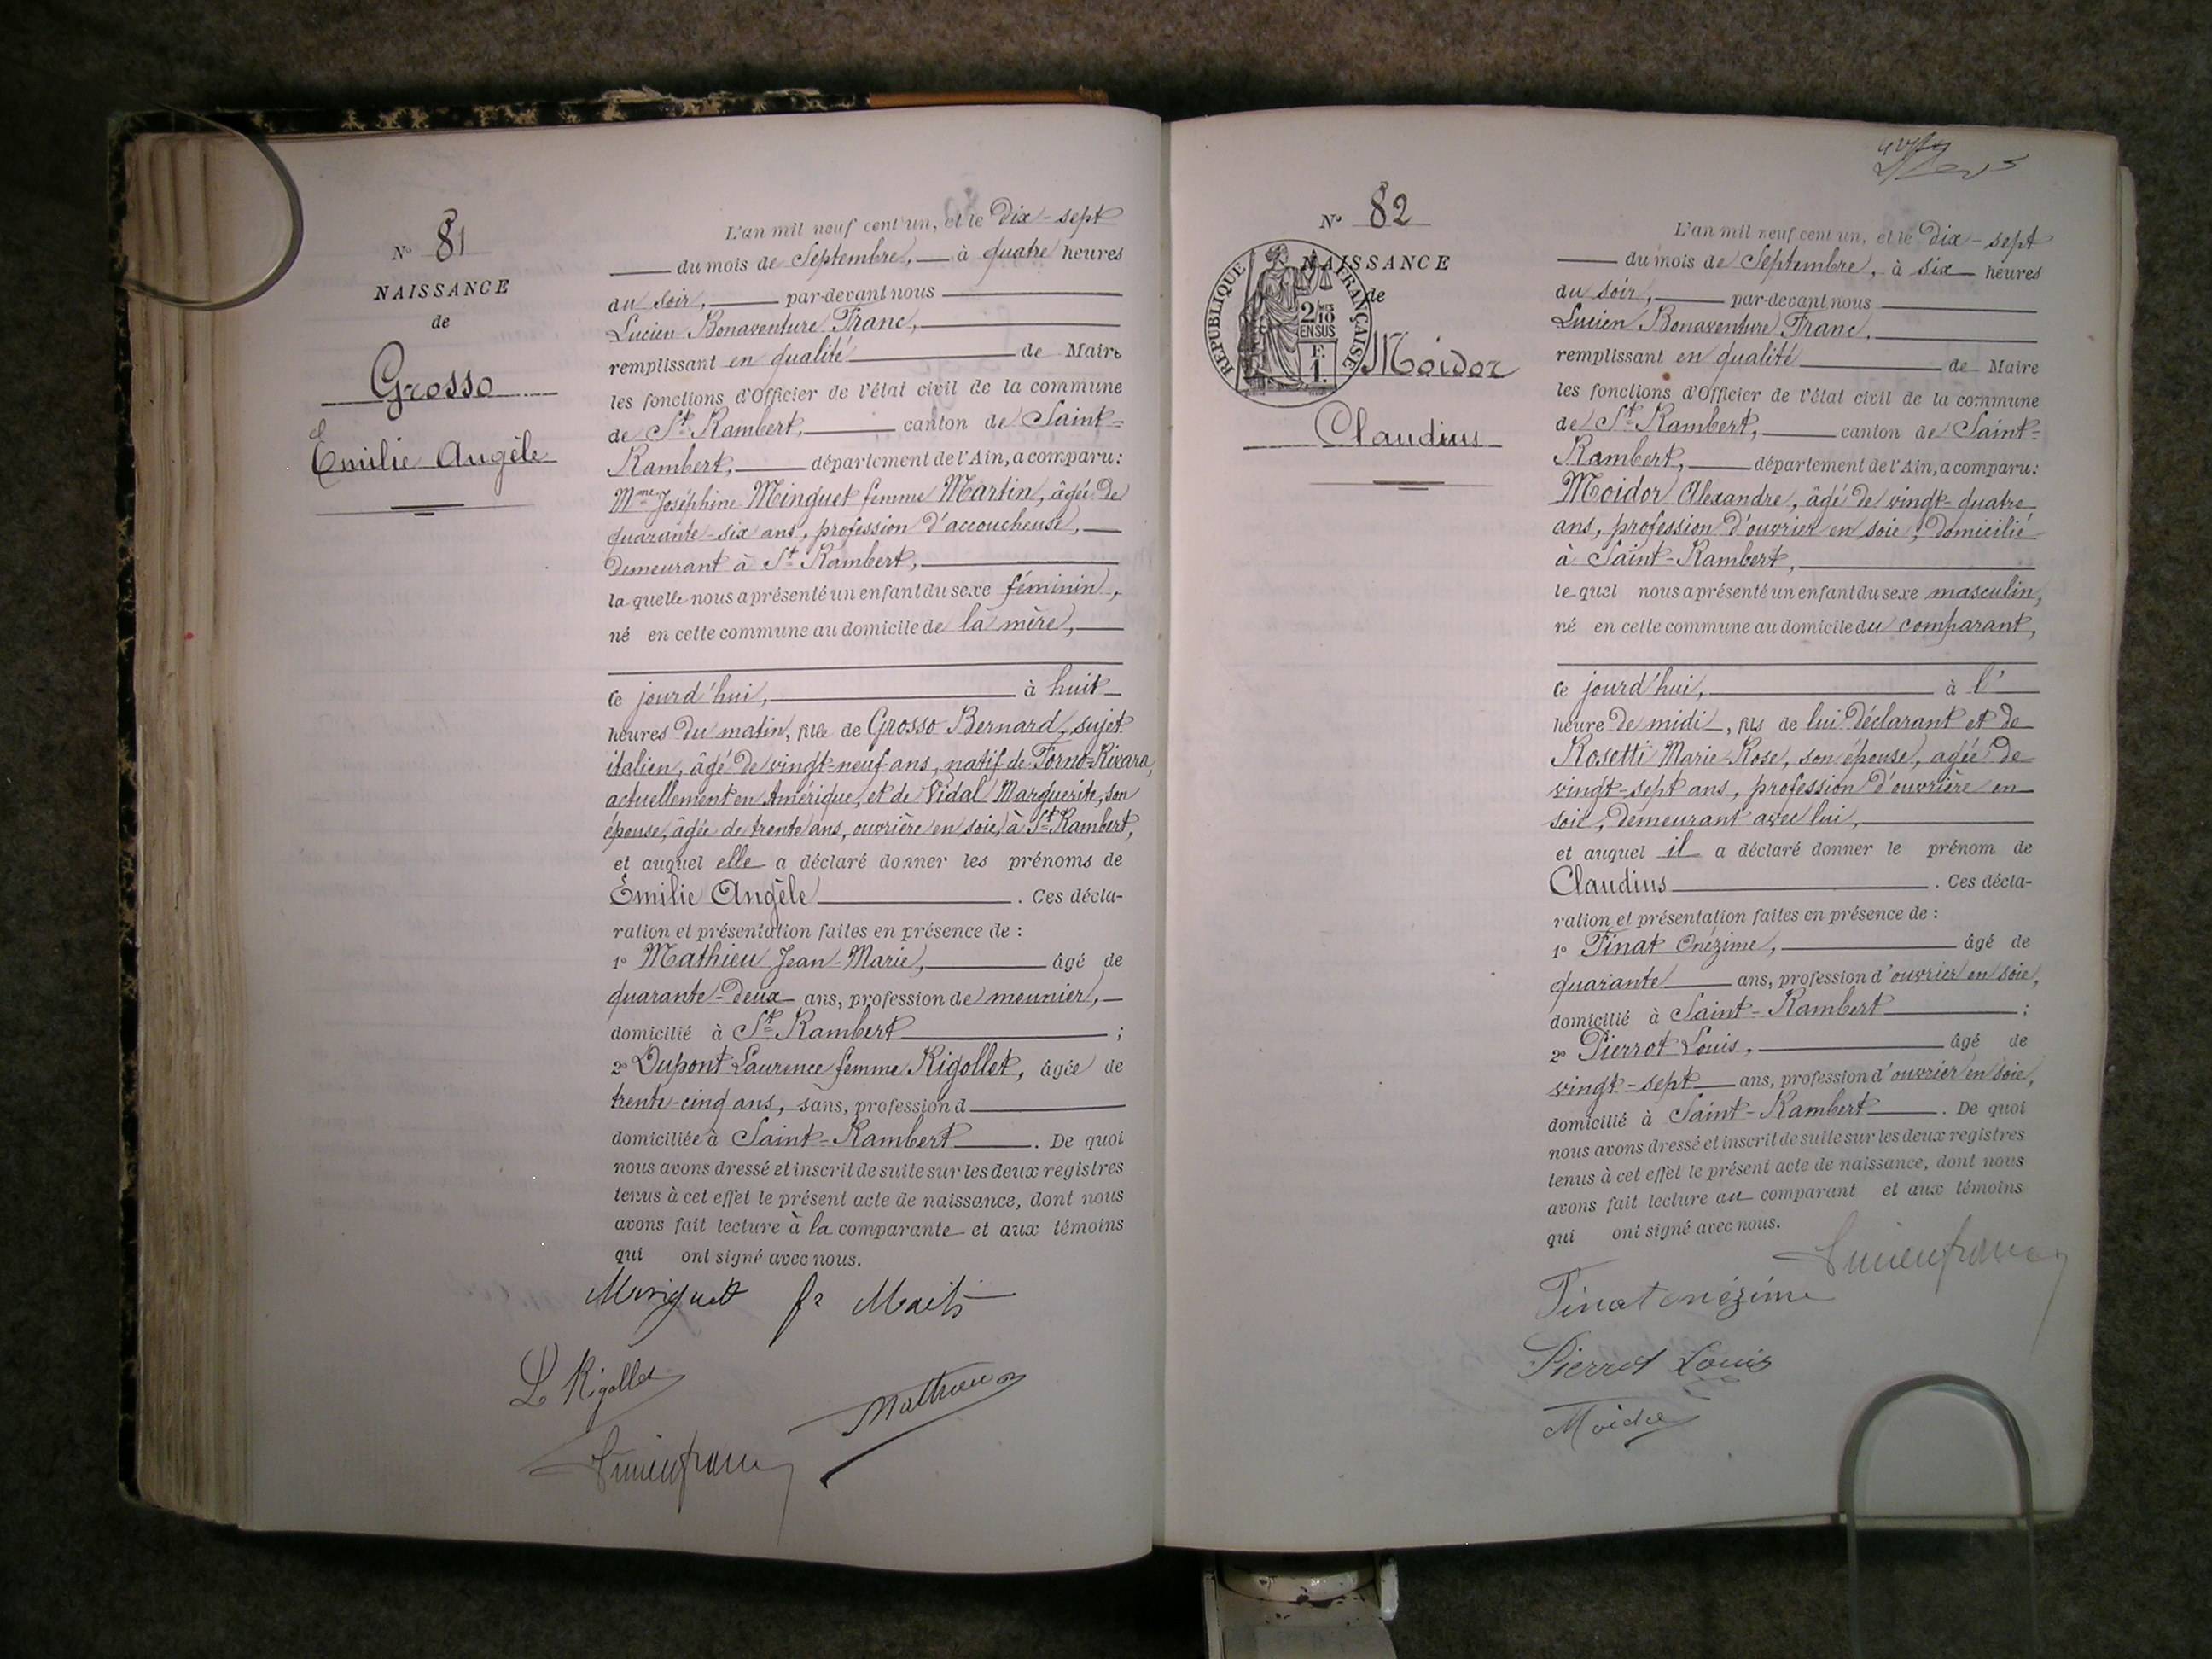 N° 81
NAISSANCE
de
Grosso
Emilie Angèle
L'an mil neuf cent un, et le Dix-sept
du mois de Septembre, à quatre heures
du soir, par-devant nous
Lucien Bonaventure Franc,
remplissant en qualité de Maire
les fonctions d'Officier de l'état civil de la commune
de St Rambert, canton de Saint-
Rambert, département de l'Ain, a comparu :
Mme Joséphine Minguet femme Martin, âgée de
quarante-six ans, profession d'accoucheuse,
demeurant à St Rambert,
laquelle nous a présenté un enfant du sexe féminin,
né en cette commune au domicile de la mère,
ce jourd'hui, à huit
heures du matin, fille de Grosso Bernard, sujet
italien, âgé de vingt-neuf ans, natif de Forno-Rivara,
actuellement en Amérique, et de Vidal Marguerite, son
épouse, âgée de trente ans, ouvrière en soie, à St Rambert,
et auquel elle a déclaré donner les prénoms de
Emilie Angèle. Ces décla-
ration et présentation faites en présence de :
1° Mathieu Jean-Marie, âgé de
quarante-deux ans, profession de meunier,
domicilié à St Rambert ;
2° Dupont Laurence femme Rigollet, âgée de
trente-cinq ans, sans, profession d
domiciliée à Saint-Rambert. De quoi
nous avons dressé et inscrit de suite sur les deux registres
tenus à cet effet le présent acte de naissance, dont nous
avons fait lecture à la comparante et aux témoins
qui ont signé avec nous.
Minguet fe Martin
L Rigollet
Mathieu
Lucien Franc
N° 82
NAISSANCE
de
RÉPUBLIQUE FRANÇAISE
2/10
EN SUS
F.
1.
Moidor
Claudius
L'an mil neuf cent un, et le dix-sept
du mois de Septembre, à six heures
du soir, par-devant nous
Lucien Bonaventure Franc,
remplissant en qualité de Maire
les fonctions d'Officier de l'état civil de la commune
de St Rambert, canton de Saint-
Rambert, département de l'Ain, a comparu :
Moidor Alexandre, âgé de vingt-quatre
ans, profession d'ouvrier en soie, domicilié
à Saint-Rambert,
lequel nous a présenté un enfant du sexe masculin,
né en cette commune au domicile du comparant,
ce jourd'hui, à l'
heure de midi, fils de lui déclarant et de
Rosetti Marie-Rose, son épouse, agée de
vingt-sept ans, profession d'ouvrière en
soie, demeurant avec lui,
et auquel il a déclaré donner le prénom de
Claudius. Ces décla-
ration et présentation faites en présence de :
1° Tinat Onézime, âgé de
quarante ans, profession d'ouvrier en soie,
domicilié à Saint-Rambert ;
2° Pierrot Louis, âgé de
vingt-sept ans, profession d'ouvrier en soie,
domicilié à Saint-Rambert. De quoi
nous avons dressé et inscrit de suite sur les deux registres
tenus à cet effet le présent acte de naissance, dont nous
avons fait lecture au comparant et aux témoins
qui ont signé avec nous.
Lucien Franc
Tinat onézime
Pierrot Louis
Moidor